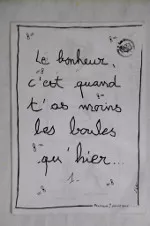 Le bonheur,
c'est quand
t'as moins
les boules
qu'hier...